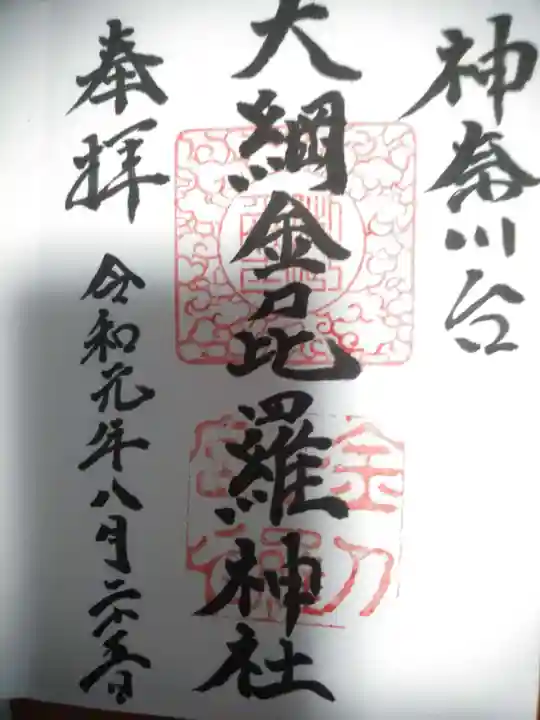 神奈川台
大綱金毘羅神社
奉拝
令和元年八月二十五日